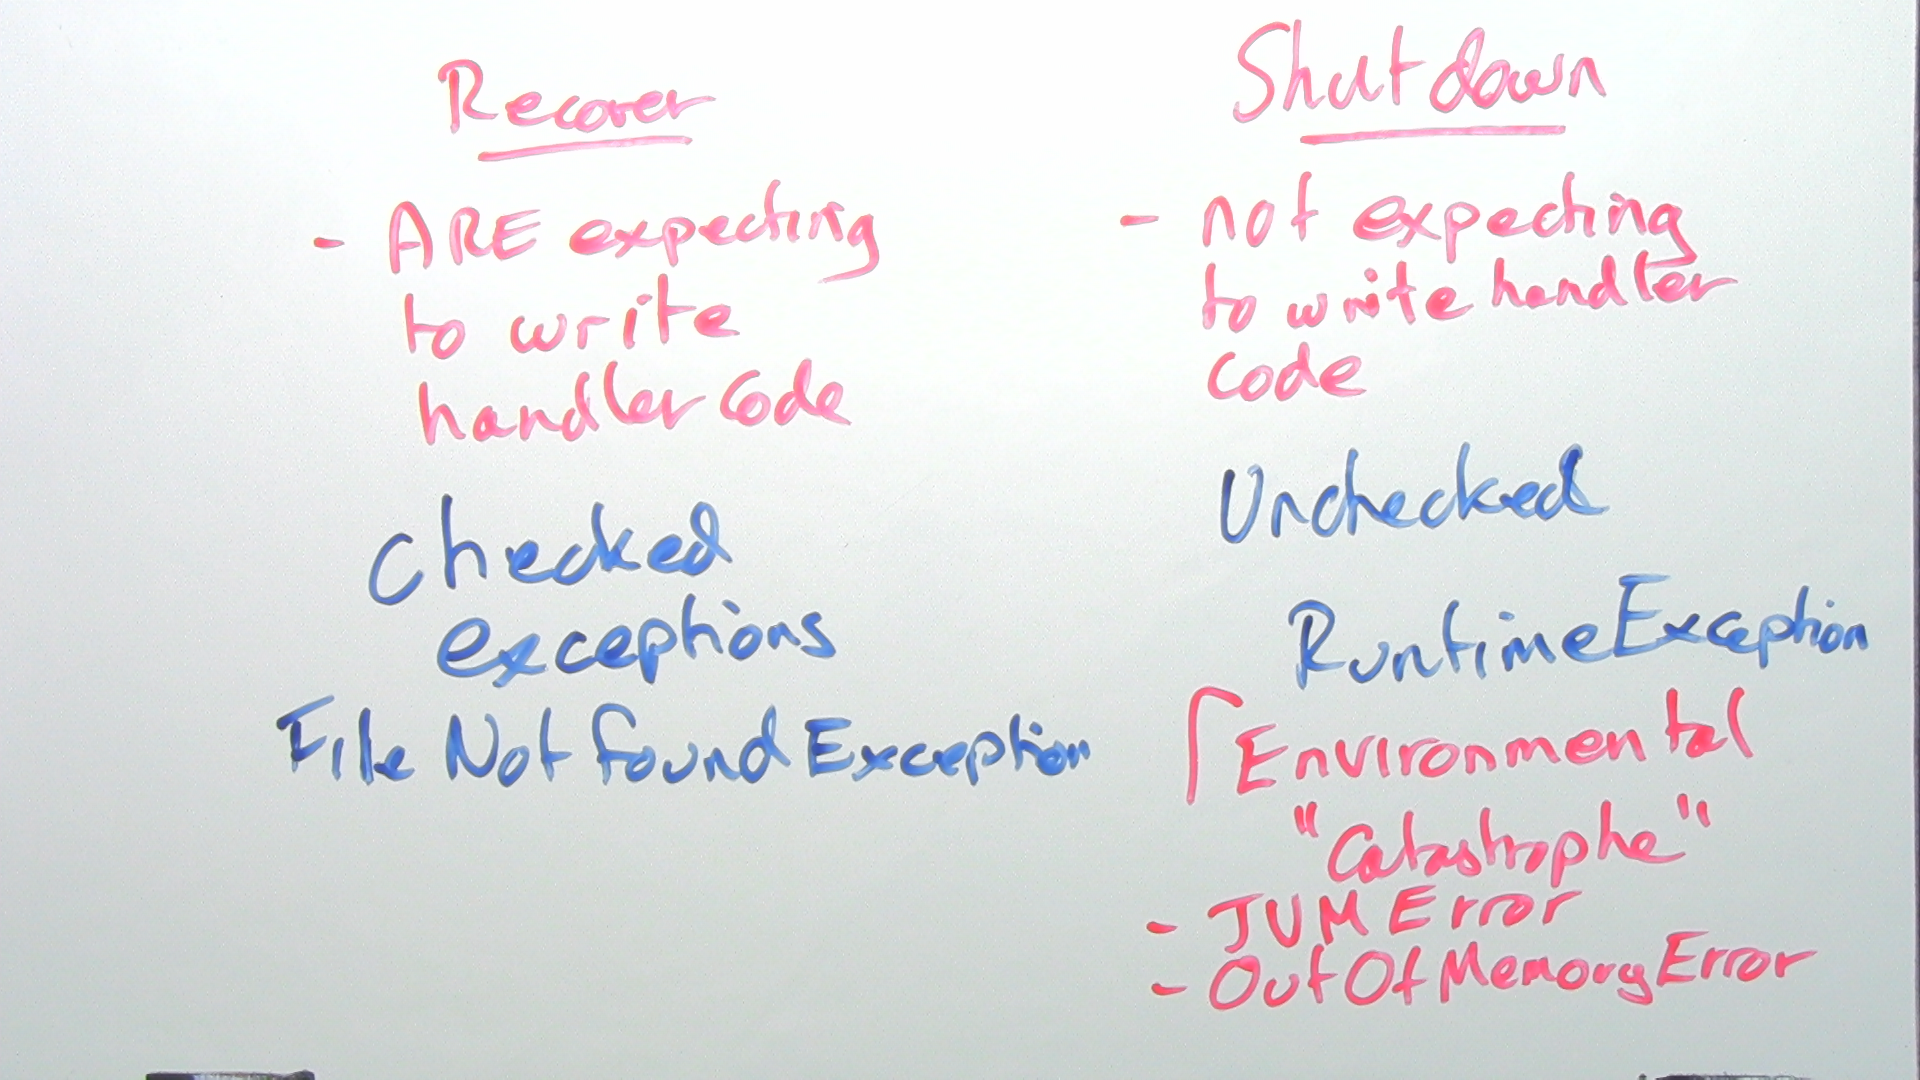 Recover
- ARE expecting
to write
handler code
Checked
exceptions
File Not Found Exception
Shutdown
- not expecting
to write handler
code
Unchecked
RuntimeException
Environmental
"Catastrophe"
- JVM Error
- OutOfMemoryError